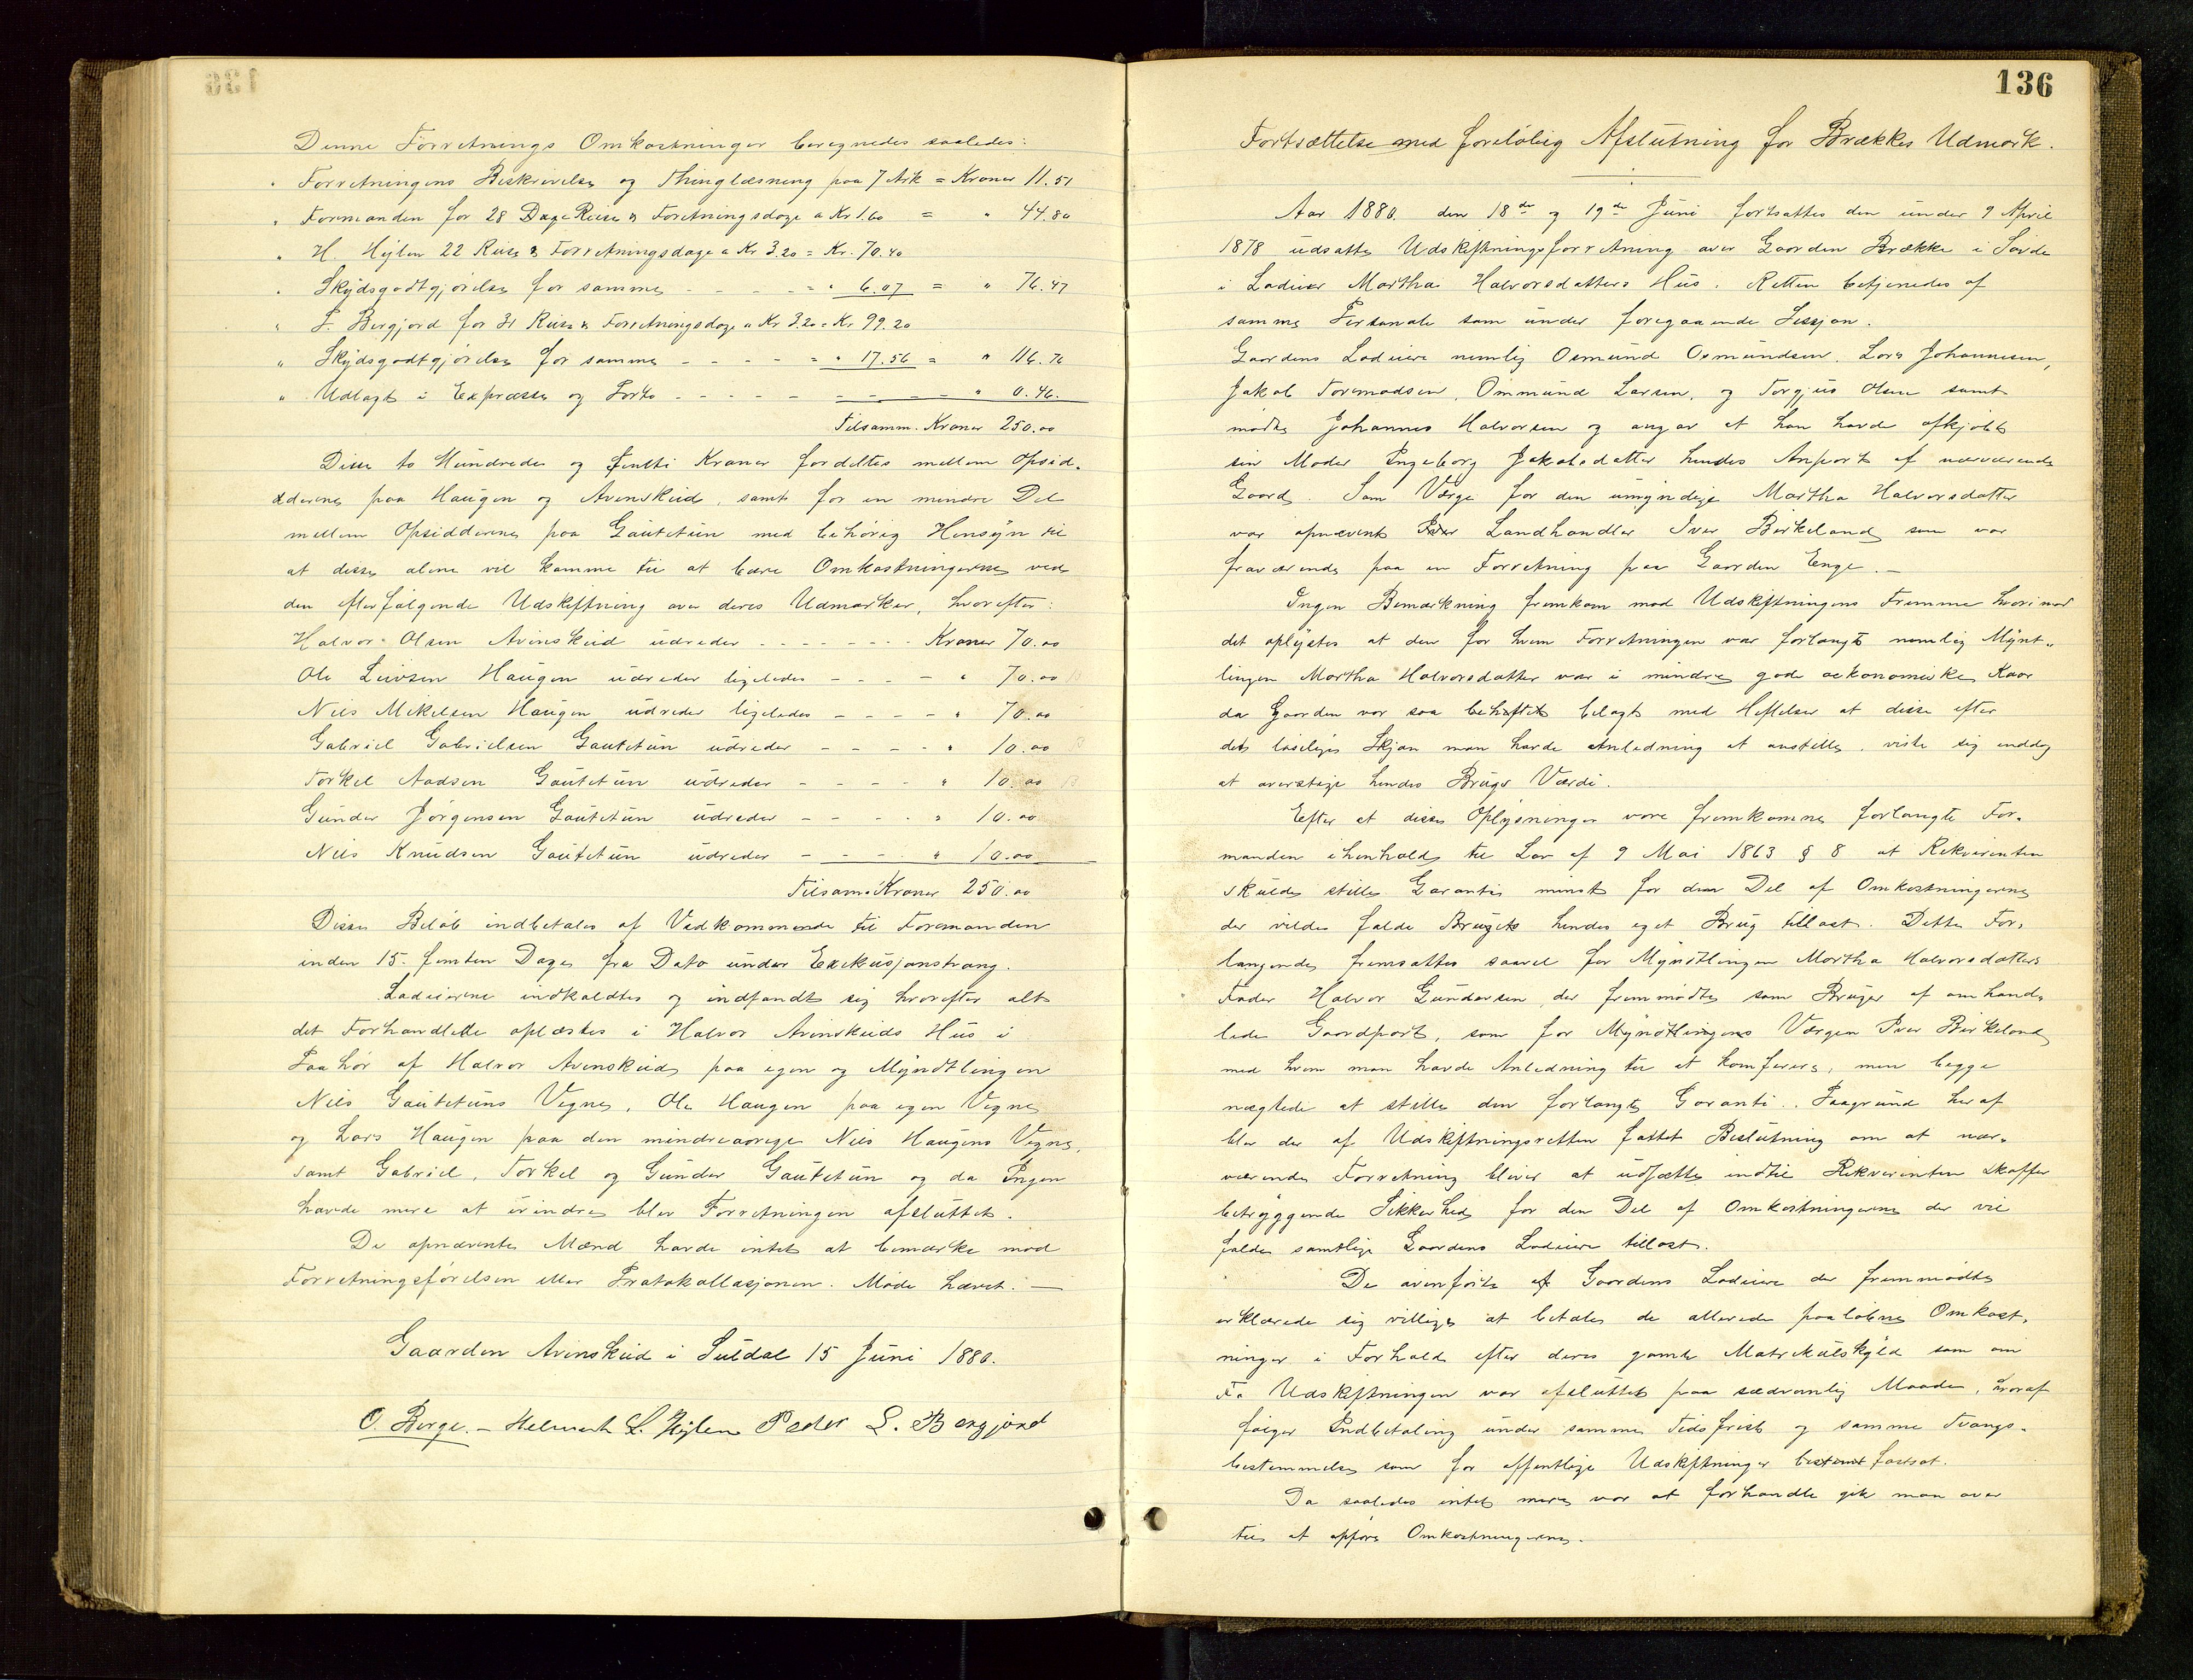 Denne Forretnings Omkostninger beregnedes saaledes:
" Forretningens Beskrivelse og Thinglæsning paa 7 Ark = Kroner 11.51
" Formanden for 28 Dage Reise & Foretningsdage a Kr 1.60 = " 44.80
" H. Hylen 22 Reise & Forretningsdage a Kr 3.20 = Kr. 70.40
" Skydsgodtgjørelse for samme - - - - = " 6.07 = " 76.47
" P. Bergjord for 31 Reise & Forretningsdage a Kr 3.20 = Kr 99.20
" Skydsgodtgjørelse for samme - - - - = " 17.56 = " 116.76
" Udlagt i Expresse og Porto - - - - - - - - - " 0.46.
Tilsamm. Kroner 250.00
Disse to Hundrede og femti Kroner fordeltes mellem Opsid-
dderne paa Haugen og Avinskud, samt for en mindre Del
mellem Opsidderne paa Gautetun med behørig Hensyn til
at disse alene vil komme til at bære Omkostningerne ved
den efterfølgende Udskiftning over deres Udmarker, hvorefter:
Halvor Olsen Avinskud udreder - - - - - - Kroner 70.00
Ole Leivsen Haugen udreder ligeledes - - - - " 70.00
Nils Mikelsen Haugen udreder ligeledes - - - - " 70.00
Gabriel Gabrielsen Gautetun udreder - - - - " 10.00
Torkel Aadsen Gautetun udreder - - - - " 10.00
Gunder Jørgensen Gautetun udreder - - - - " 10.00
Nils Knudsen Gautetun udreder - - - - " 10.00
Tilsam. Kroner 250.00
Disse Beløb indbetales af Vedkommende til Formanden
inden 15. femten Dage fra Dato under Exekusjonstvang.
Lodeierne indkaldtes og indfandt sig hvorefter alt
det Forhandlede oplæstes i Halvor Avinskuds Hus i
Paahør af Halvor Avinskud paa egen og Myndtlingen
Nils Gautetuns Vegne, Ole Haugen paa egen Vegne
og Lars Haugen paa den mindreaarige Nils Haugens Vegne,
samt Gabriel, Torkel og Gunder Gautetun og da Ingen
havde mere at erindre blev Forretningen afsluttet.
De opnævnte Mænd havde intet at bemærke mod
Forretningsførelsen eller Protokollasjonen. Møde hævet. —
Gaarden Avinskud i Suldal 15 Juni 1880.
O. Berge. - Helmich L. Hylen Peder L. Bergjord
136
Fortsættelse med foreløbig Afslutning for Brækkes Udmark.
Aar 1880. den 18de og 19de Juni fortsattes den under 9 April
1878 udsatte Udskiftningsforretning over Gaarden Brække i Sovde
i Lodeier Martha Halvorsdatters Hus. Retten betjenedes af
samme Personale som under foregaaende Sessjon.
Gaardens Lodeiere nemlig Osmund Osmundsen, Lars Johannesen,
Jakob Tormodsen, Ommund Larsen, og Torgjus Olsen samt
mødte Johannes Halvorsen og angav at han havde afkjøbt
sin Moder Ingeborg Jakobsdatter hendes Anpart af nærværende
Gaard. Som Værge for den umyndige Martha Halvorsdatter
var opnævnt Landhandler Iver Birkeland som var
fraværende paa en Forretning paa Gaarden Enge. —
Ingen Bemærkning fremkom mod Udskiftningens Fremme hvorimod
det oplystes at den for hvem Forretningen var forlangt nemlig Mynt-
lingen Martha Halvorsdatter var i mindre gode oekonomiske Kaar
da Gaarden var saa behæftet belagt med Heftelser at disse efter
det løselige Skjøn man havde Anledning at anstille, viste sig endog
at overstige hendes Brugs Værdi.
Efter at disse Oplysninger vare fremkomne forlangte For-
manden ihenhold til Lov af 9 Mai 1863 § 8 at Rekvirenten
skulde stille Garanti minst for den Del af Omkostningerne
der vilde falde Brugets hendes eget Brug tillast. Dette For-
langende fremsattes saavel for Myndtlingen Martha Halvorsdatters
Fader Halvor Gundersen der fremmødte som Bruger af omhand-
lede Gaardpart, som for Myndtlingens Værgen Iver Birkeland
med hvem man havde Anledning til at komferere, men begge
nægtede at stille den forlangte Garanti. Paagrund heraf
blev der af Udskiftningsretten fattet Beslutning om at nær-
værende Forretning bliver at udsætte indtil Rekvirenten skaffer
betryggende Sikkerhed for den Del af Omkostningerne der vil
falde samtlige Gaardens Lodeiere tillast.
De ovenførte af Gaardens Lodeiere der fremmødte
erklærede sig villige at betale de allerede paaløbne Omkost-
ninger i Forhold efter deres gamle Matrikulskyld som om
Udskiftningen var afsluttet paa sædvanlig Maade, hvoraf
følger Indbetaling under samme Tidsfrist og samme Tvangs-
bestemmelse som for offentlige Udskiftninger bestemt fastsat.
Da saaledes intet mere var at forhandle gik man over
til at opføre Omkostningerne.